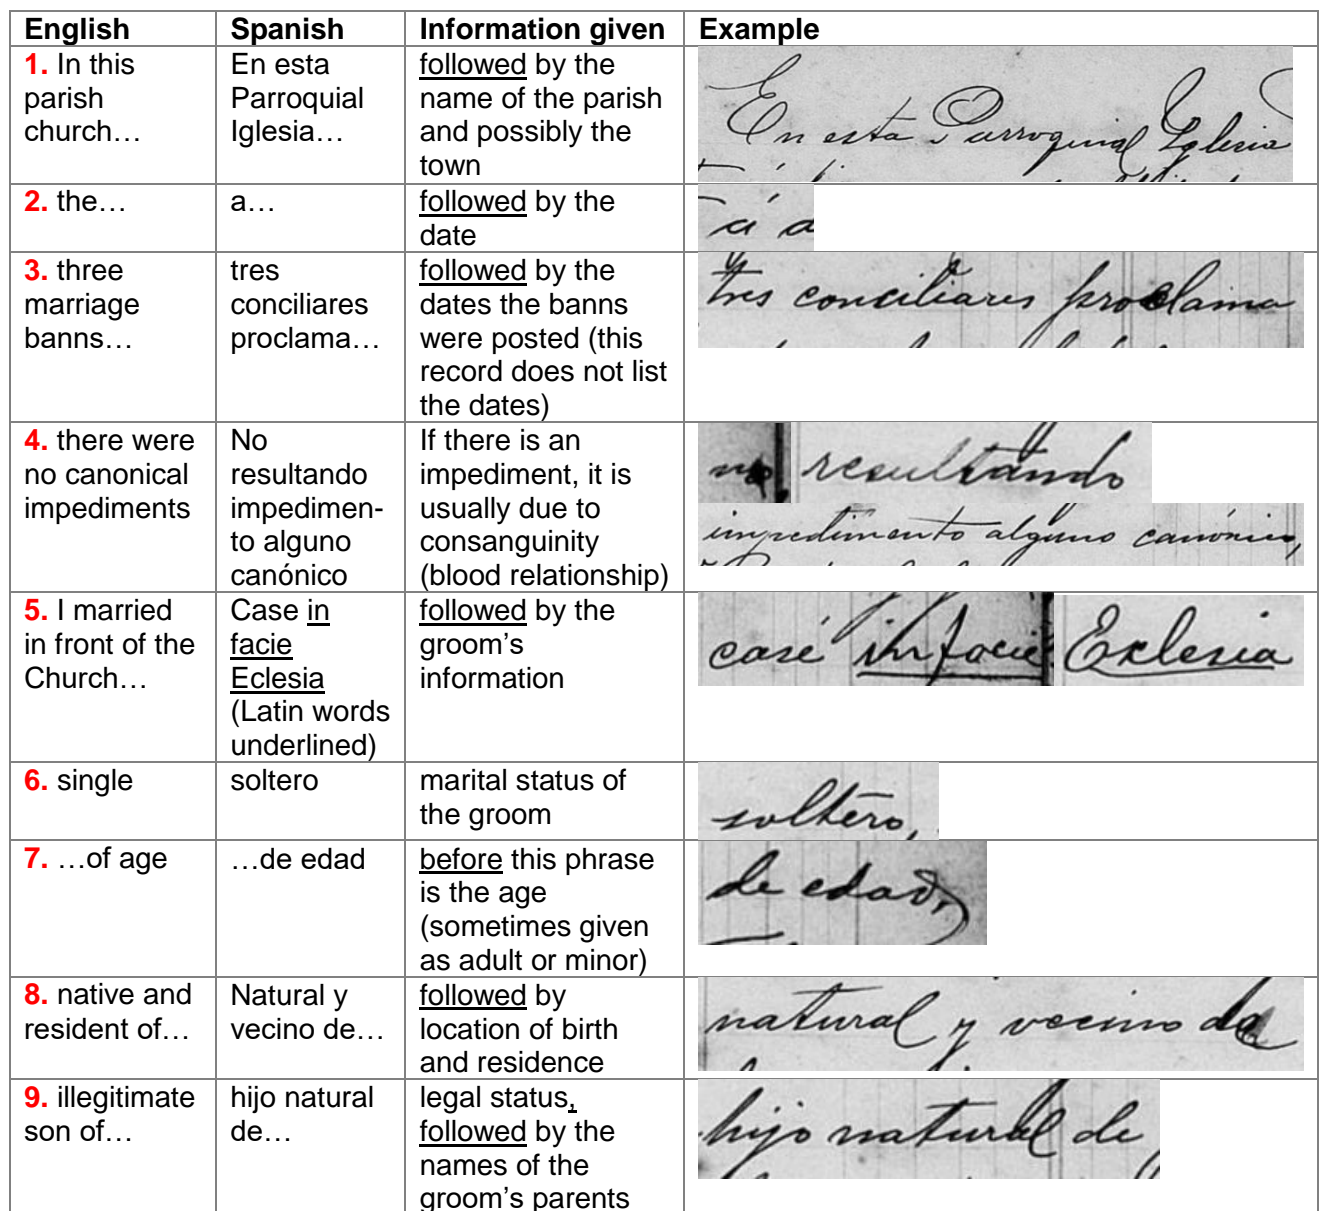 English Spanish Information given Example
1. In this
parish
church…
En esta
Parroquial
Iglesia…
followed by the
name of the parish
and possibly the
town
En esta Parroquial Iglesia
2. the…
a…
followed by the
date
a
3. three
marriage
banns…
tres
conciliares
proclama…
followed by the
dates the banns
were posted (this
record does not list
the dates)
tres conciliares proclama
4. there were
no canonical
impediments
No
resultando
impedimen-
to alguno
canónico
If there is an
impediment, it is
usually due to
consanguinity
(blood relationship)
no resultando
impedimento alguno canónico,
5. I married
in front of the
Church…
Case in
facie
Eclesia
(Latin words
underlined)
followed by the
groom’s
information
casé in facie Eclesia
6. single
soltero
marital status of
the groom
soltero,
7. …of age
…de edad
before this phrase
is the age
(sometimes given
as adult or minor)
de edad,
8. native and
resident of…
Natural y
vecino de…
followed by
location of birth
and residence
natural y vecino de
9. illegitimate
son of…
hijo natural
de…
legal status,
followed by the
names of the
groom’s parents
hijo natural de